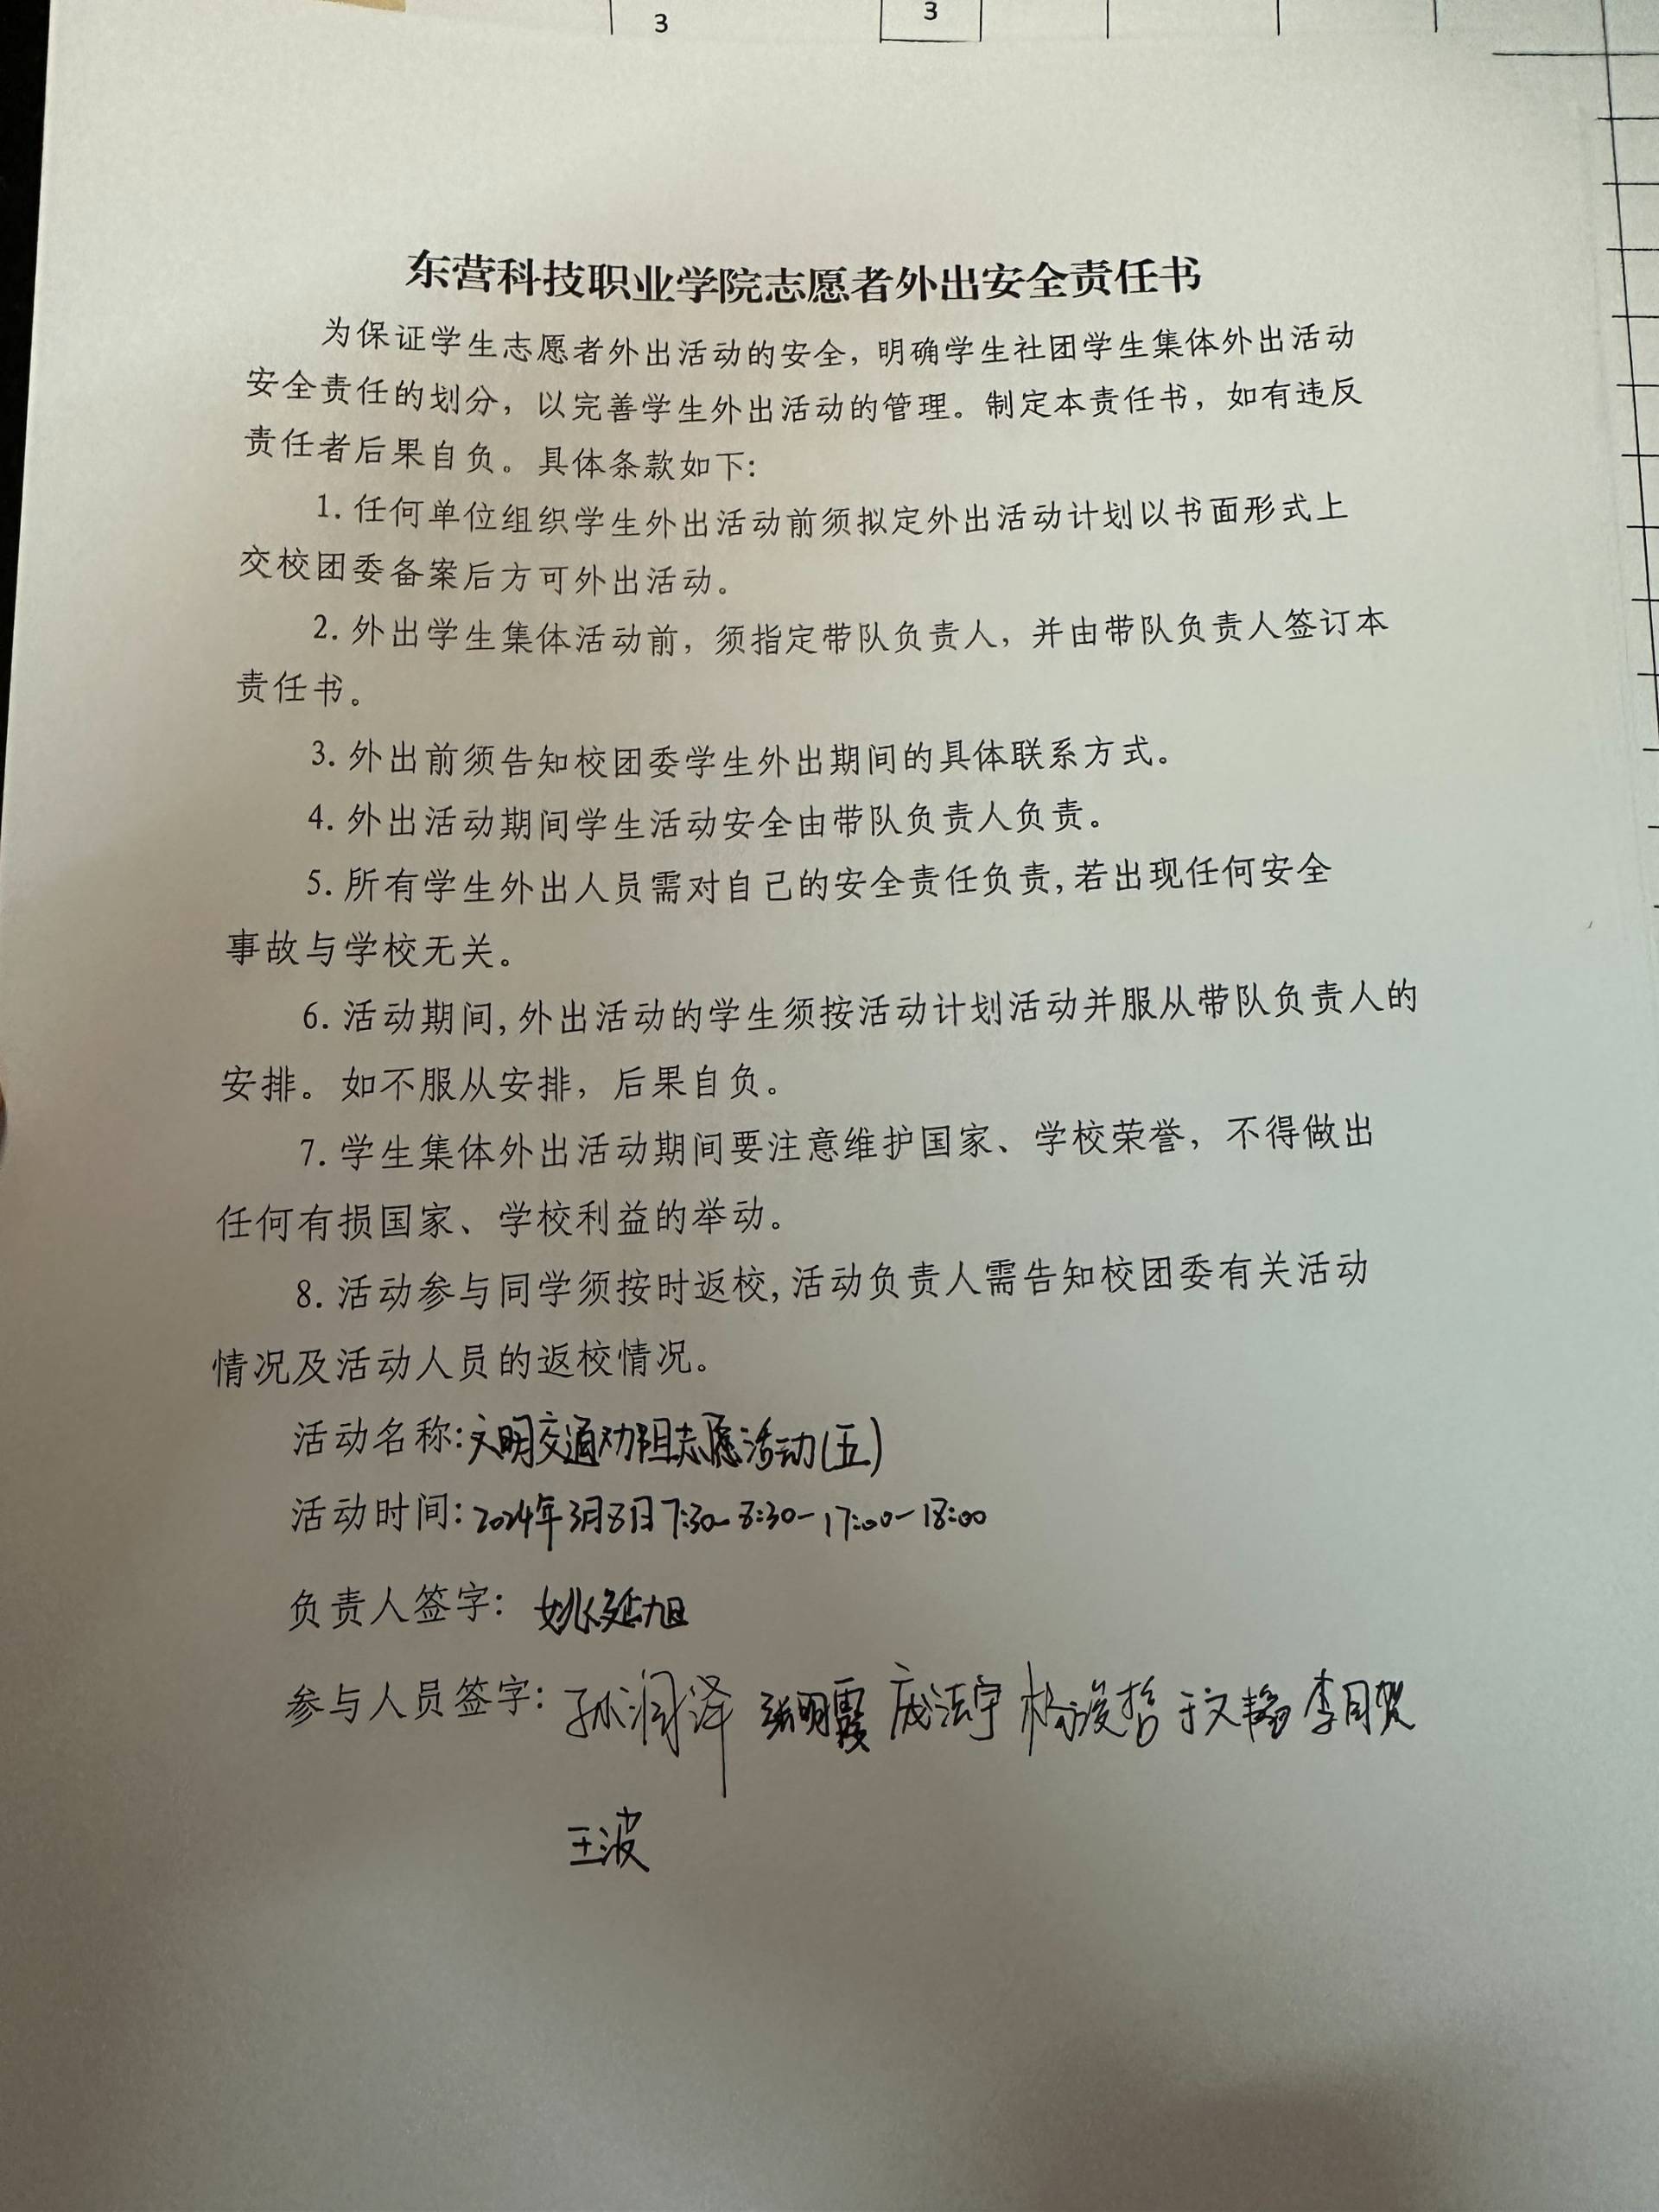 3
3
东营科技职业学院志愿者外出安全责任书
为保证学生志愿者外出活动的安全，明确学生社团学生集体外出活动
安全责任的划分，以完善学生外出活动的管理。制定本责任书，如有违反
责任者后果自负。具体条款如下:
1. 任何单位组织学生外出活动前须拟定外出活动计划以书面形式上
交校团委备案后方可外出活动。
2. 外出学生集体活动前，须指定带队负责人，并由带队负责人签订本
责任书。
3. 外出前须告知校团委学生外出期间的具体联系方式。
4. 外出活动期间学生活动安全由带队负责人负责。
5. 所有学生外出人员需对自己的安全责任负责,若出现任何安全
事故与学校无关。
6. 活动期间,外出活动的学生须按活动计划活动并服从带队负责人的
安排。如不服从安排，后果自负。
7. 学生集体外出活动期间要注意维护国家、学校荣誉，不得做出
任何有损国家、学校利益的举动。
8. 活动参与同学须按时返校,活动负责人需告知校团委有关活动
情况及活动人员的返校情况。
活动名称:文明交通劝阻志愿活动(五)
活动时间:2024年3月8日7:30-8:30-17:00-18:00
负责人签字: 姚延旭
参与人员签字: 孙润泽 张明霞 庞洁宇 杨浚哲 于文静 李月贺
王波